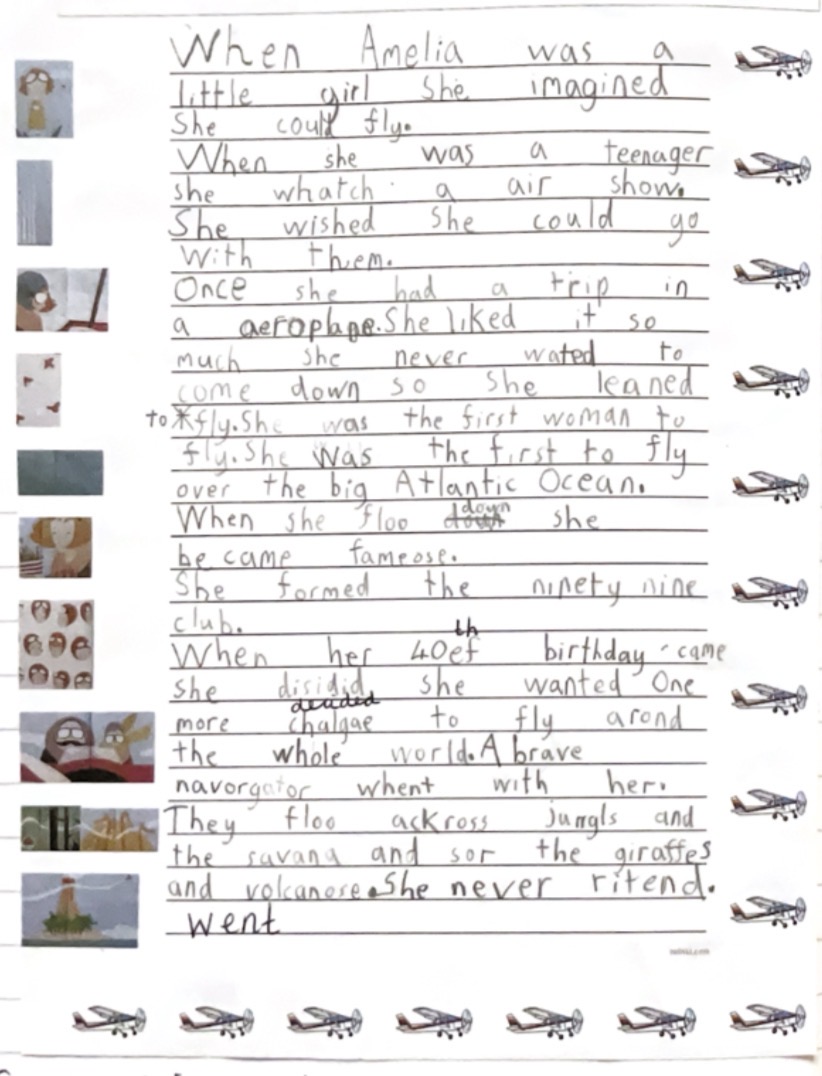 When Amelia was a
little girl She imagined
She could fly.
When she was a teenager
she whatch a air show.
She wished She could go
With them.
Once she had a trip in
a aeroplane. She liked it so
much she never wated to
come down so she leaned
to *fly. She was the first woman to
fly. She Was the first to fly
over the big Atlantic Ocean.
down
When she floo down she
be came fameose.
She formed the ninety nine
club.
th
When her 40ef birthday came
she disidid she wanted One
decided
more chalgae to fly arond
the whole world. A brave
navorgator whent with her.
They floo ackross jungls and
the savana and sor the giraffes
and volcanose. She never ritend.
went